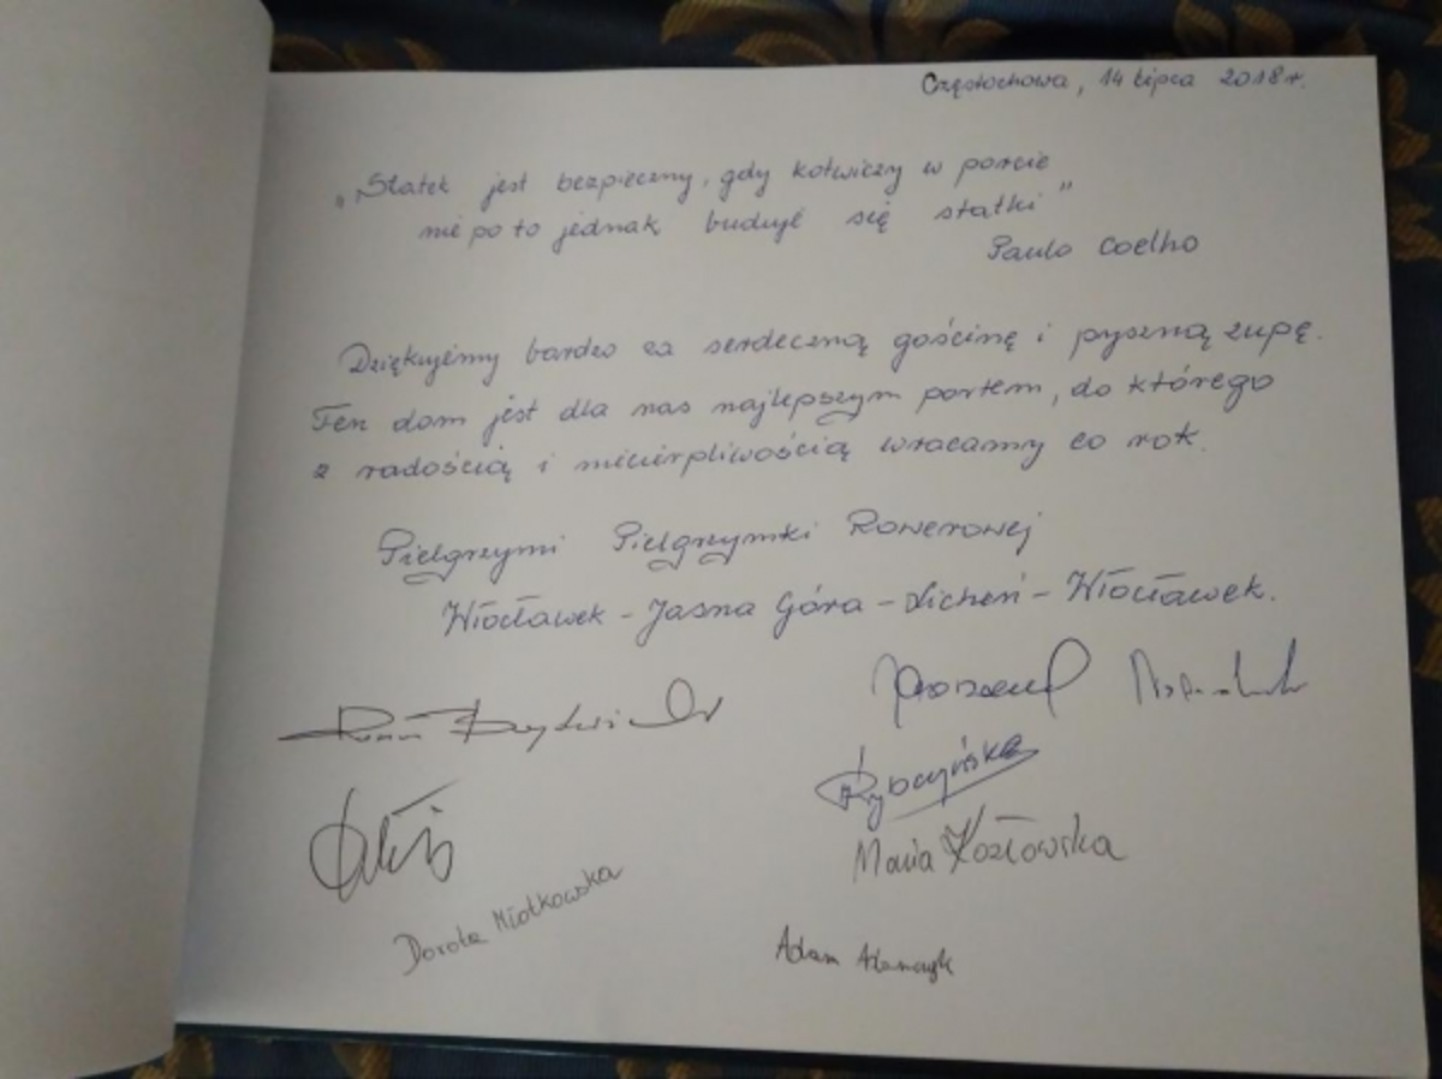 Częstochowa, 14 lipca 2018 r.
„Statek jest bezpieczny, gdy kotwiczy w porcie
nie po to jednak buduje się statki"
Paulo Coelho
Dziękujemy bardzo za serdeczną gościnę i pyszną zupę.
Ten dom jest dla nas najlepszym portem, do którego
z radością i niecierpliwością wracamy co rok.
Pielgrzymi Pielgrzymki Rowerowej
Włocławek - Jasna Góra - Licheń - Włocławek.
Rybczyńska
Maria Kozłowska
Dorota Miotkowska
Adam Adamczyk